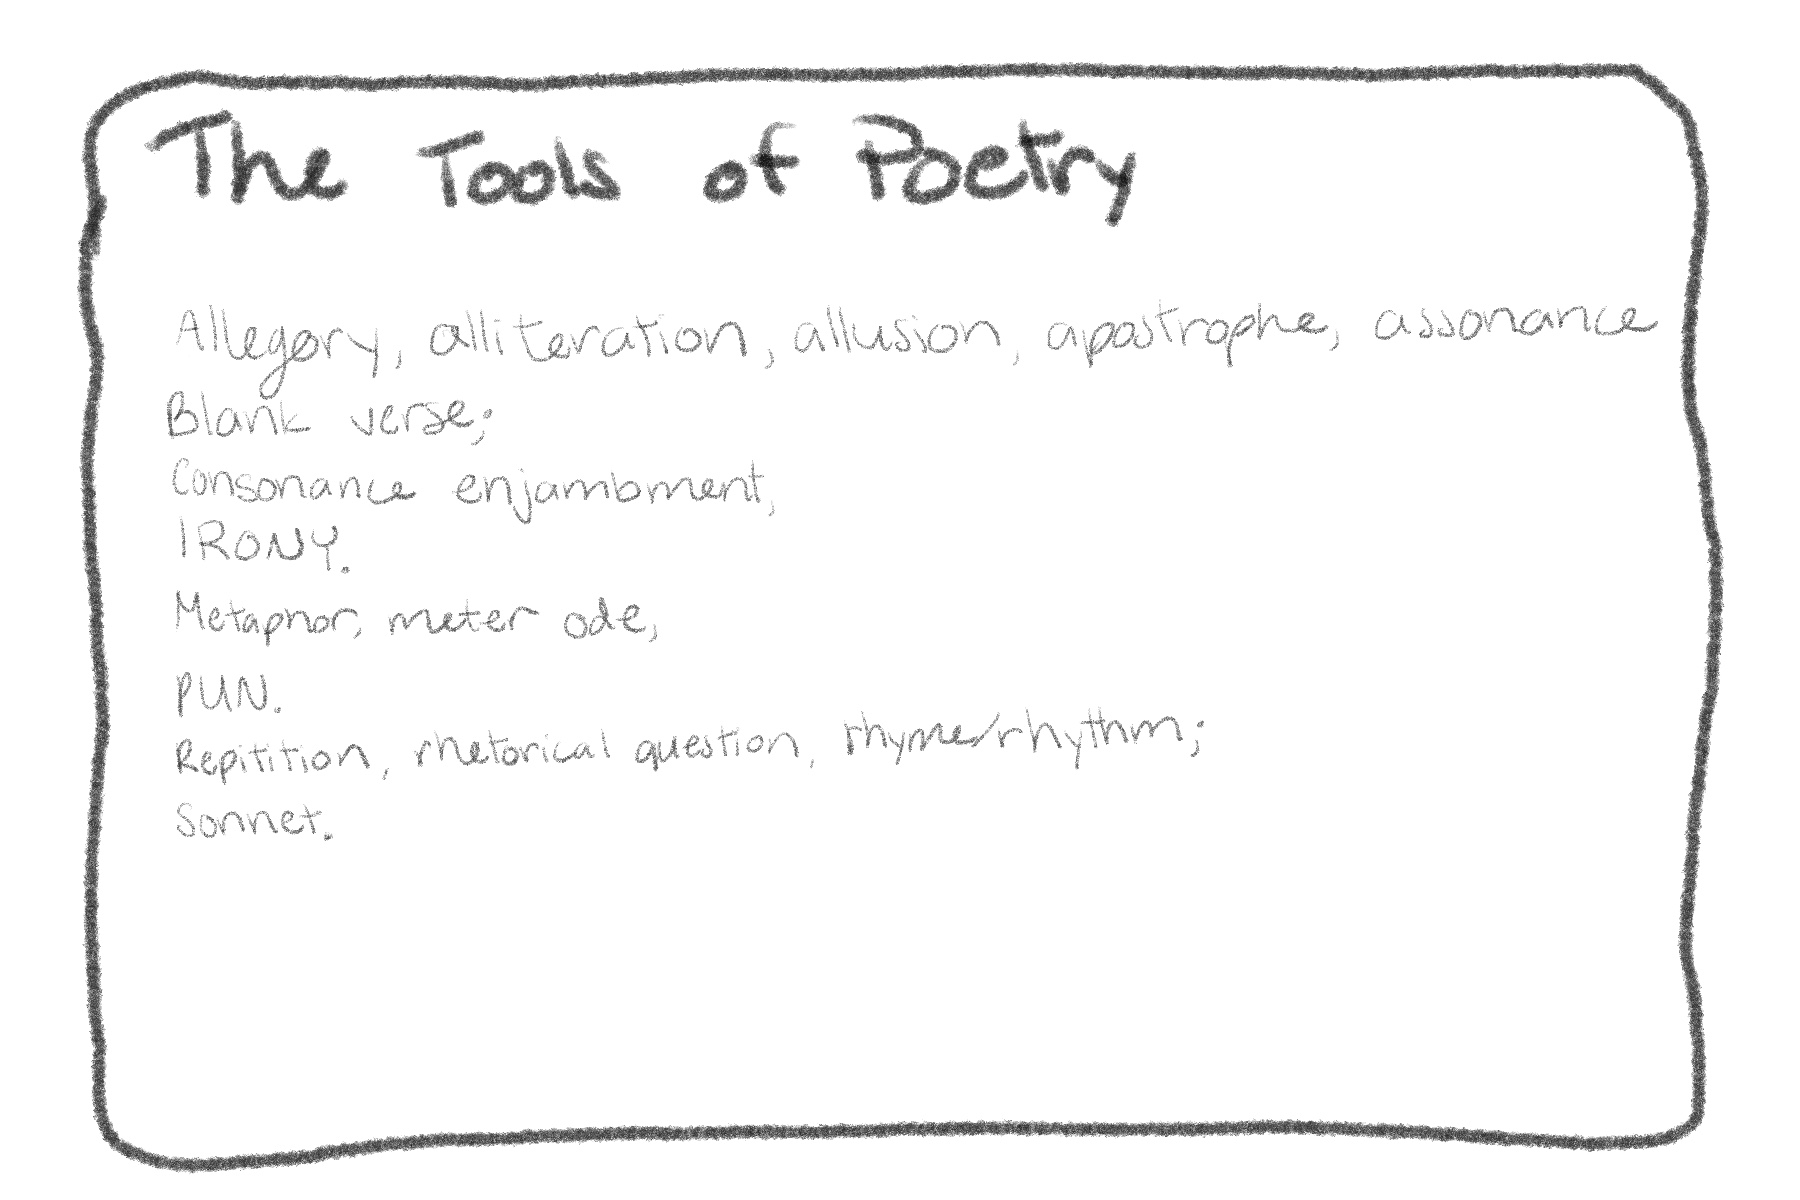 The Tools of Poetry
Allegory, alliteration, allusion, apostrophe, assonance
Blank verse;
Consonance enjambment,
IRONY.
Metaphor, meter ode,
PUN.
Repitition, rhetorical question, rhyme/rhythm;
Sonnet.